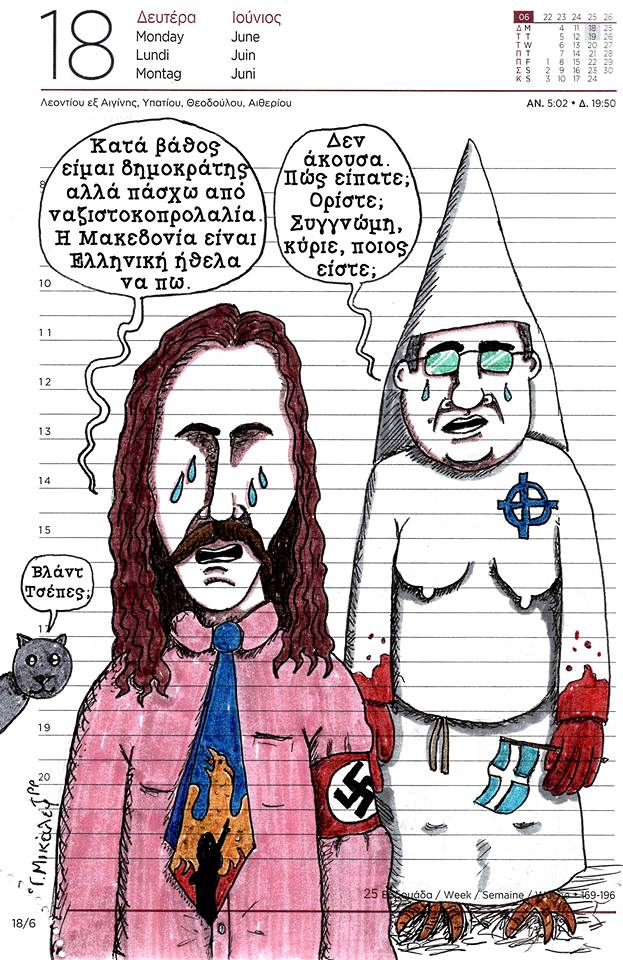 18
Δευτέρα Ιούνιος
Monday June
Lundi Juin
Montag Juni
06 22 23 24 25 26
Δ M 4 11 18 25
Τ T 5 12 19 26
Τ W 6 13 20 27
Π T 7 14 21 28
Π F 1 8 15 22 29
Σ S 2 9 16 23 30
Κ S 3 10 17 24
Λεοντίου εξ Αιγίνης, Υπατίου, Θεοδούλου, Αιθερίου
ΑΝ. 5:02 • Δ. 19:50
Κατά βάθος
είμαι δημοκράτης
αλλά πάσχω από
ναζιστοκοπρολαλία.
Η Μακεδονία είναι
Ελληνική ήθελα
να πω.
Δεν
άκουσα.
Πώς είπατε;
Ορίστε;
Συγγνώμη,
κύριε, ποιος
είστε;
8
10
11
12
13
14
15
Βλάντ
Τσέπες;
17
19
20
Γ. Μικάλεφ
25 Εβδομάδα / Week / Semaine / Woche • 169-196
18/6